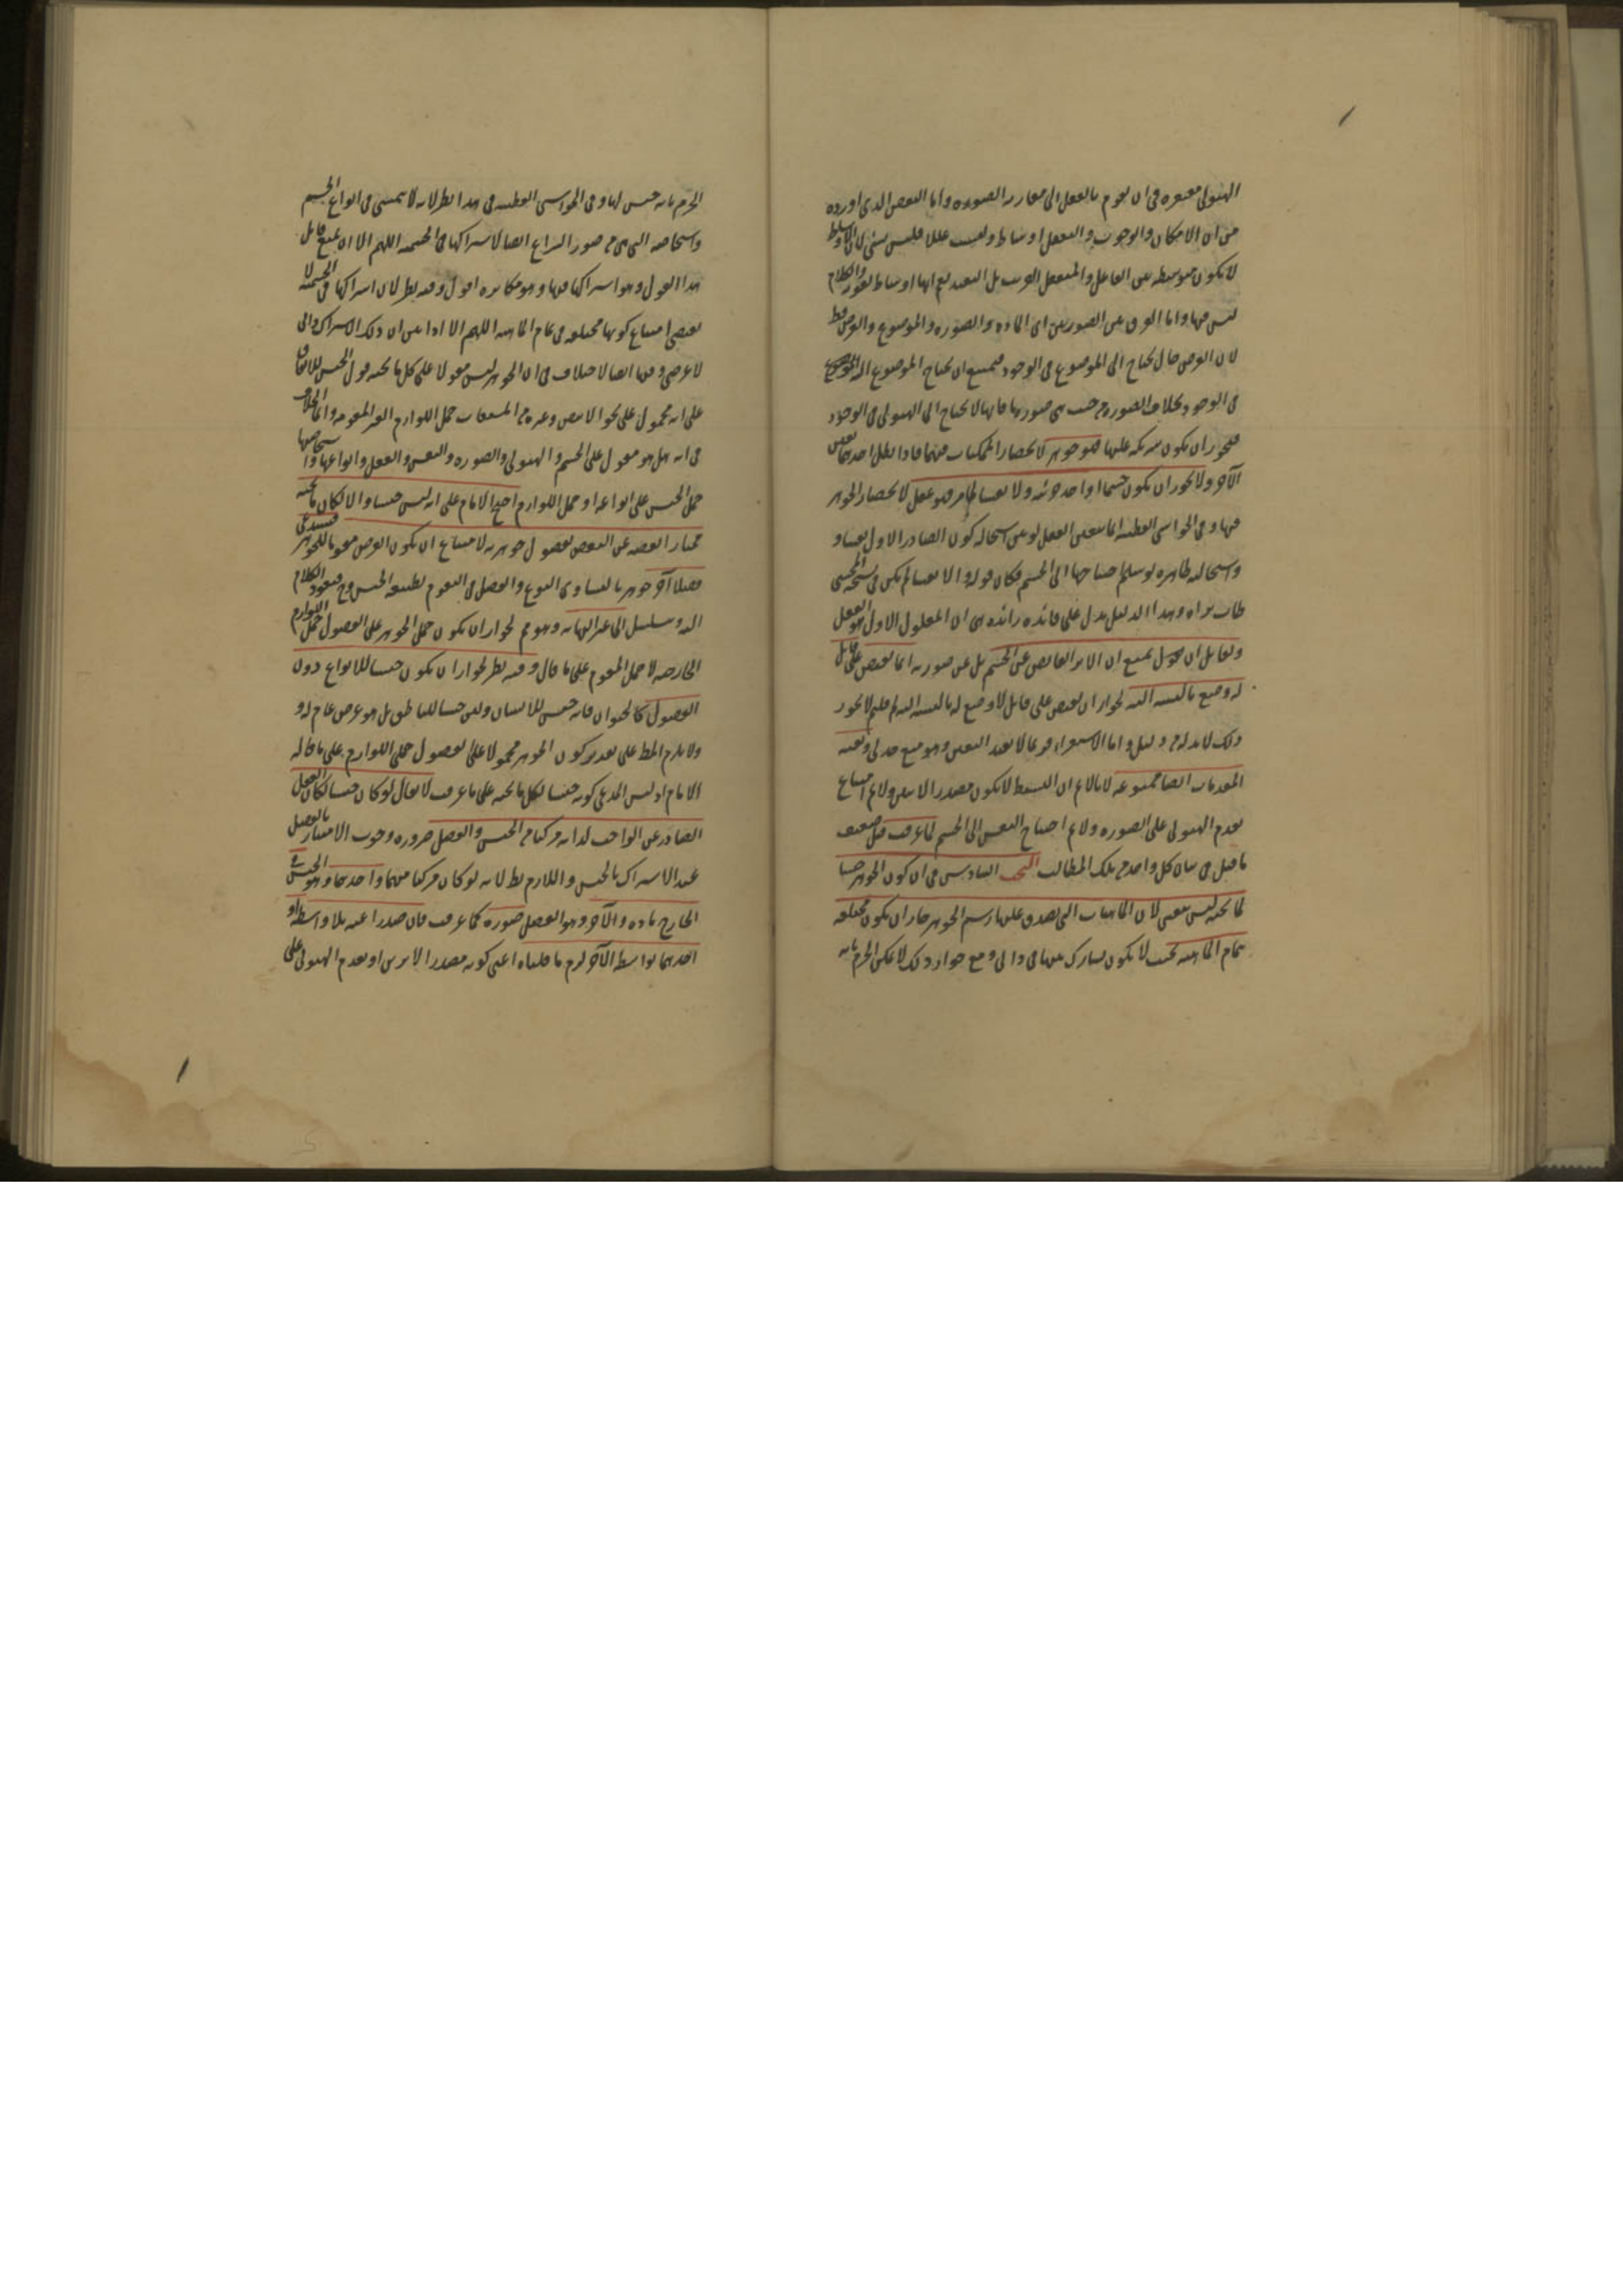 الهيولى معتبره فى ان يقوم بالفعل الى مقارنه الصوره واما النقض الذى اورده
من ان الامكان والوجوب والتعقل اوساط وليست عللا فليس بشئ لان الاوساط
لا يكون متوسطه بين الفاعل والمنفعل القريب بل البعيد نعم انها اوساط والكلام
ليس فيها واما الفرق بين الصورتين اى الماده والصوره والموضوع والعرض
لان العرض حال يحتاج الى الموضوع فى الوجود فيمتنع ان يحتاج الموضوع اليه
فى الوجود بخلاف الصوره من حيث هى صوره فانها لا يحتاج الى الهيولى فى الوجود
فيجوز ان يكون شريكه علتها فهو جوهر لانحصار الممكنات فيهما فاذا بطل احدهما تعين
الآخر ولا يجوز ان يكون جسما او احد جزئيه ولا نفسا لما مر فهو عقل لانحصار الجوهر
فيها وفى الحواشى القطبيه انما يتعين العقل لو بين استحاله كون الصادر الاول نفسا و
واستحالته ظاهره لو سلم احتياجها الى الجسم فكان قوله والا نفسا لم يكن فى نسخه المحشى
طاب ثراه وهذا الدليل يدل على فائده زائده هى ان المعلول الاول هو العقل
ولقائل ان يقول يمتنع ان الاثر الفائض عن الجسم بل عن صورته انما يفيض على قابل
له وضع بالنسبه اليه لجواز ان يفيض على قابل لا وضع له بالنسبه اليه لم قلتم لا يجوز
ذلك لا بد له من دليل واما الاستقراء فربما لا يفيد اليقين وهو منع جدلى وبقيه
المقدمات ايضا ممنوعه لانا لا نم ان البسيط لا يكون مصدر الاثرين ولا نم امتناع
تقدم الهيولى على الصوره ولا نم احتياج النفس الى الجسم لما عرفت من ضعف
ما قيل فى بيان كل واحد من تلك المطالب البحث السادس فى ان كون الجوهر جنسا
لما تحته ليس بيقينى لان الماهيات التى يصدق عليها رسم الجوهر جاز ان يكون مختلفه
بتمام الماهيه بحيث لا يكون مشترك بينها فى ذاتى ومع جواز ذلك لا يمكن الجزم بانه
الجزم بانه جنس لها وفى الحواشى القطبيه فى هذا نظر لانه لا يتمشى فى انواع الجسم
واشخاصه التى هى من صور النزاع ايضا لاشتراكها فى الجسميه اللهم الا ان يمنع قائل
هذا القول وهو اشتراكها فيها وهو مكابره اقول وفيه نظر لان اشتراكها فى الجسميه لا
يقتضى امتناع كونها مختلفه فى تمام الماهيه اللهم الا اذا بين ان ذلك الاشتراك ذاتى
لا عرضى وفيها ايضا لا خلاف فى ان الجوهر ليس مقولا على كل ما تحته قول الجنس للاتفاق
على انه محمول على نحو الابيض وغيره من المشتقات حمل اللوازم الغير المقومه وانما الخلاف
فى انه هل هو مقول على الجسم والهيولى والصوره والنفس والعقل وانواعها واشخاصها
حمل الجنس على انواعه او حمل اللوازم احتج الامام على انه ليس جنسا والا لكان ما تحته
ممتازا بعضه عن البعض بفصول جوهريه لامتناع ان يكون العرض مقوما للجوهر فيستدعى
فصلا آخر جوهريا لتساوى النوع والفصل فى التقوم بطبيعه الجنس وح فيعود الكلام
اليه وتسلسل الى غير النهايه وهو مم لجواز ان يكون حمل الجوهر على الفصول حمل اللوازم
الخارجيه لا حمل المقوم على ما قال وفيه نظر لجواز ان يكون جنسا للانواع دون
الفصول كالحيوان فانه جنس للانسان وليس جنسا للناطق بل هو عرض عام له و
ولا يلزم المط على تقدير كون الجوهر محمولا على الفصول حمل اللوازم على ما قاله
الامام اذ ليس المدعى كونه جنسا لكل ما تحته على ما عرفت لا يقال لو كان جنسا لكان العقل
الصادر عن الواجب لذاته مركبا من الجنس والفصل ضروره وجوب الامتياز بالفصل
عند الاشتراك بالجنس واللازم بط لانه لو كان مركبا منهما واحدهما وهو الجنس فى
الخارج ماده والآخر وهو الفصل صوره كما عرفت فان صدرا عنه بلا واسطه او
احدهما بواسطه الآخر لزم ما قلناه اعنى كونه مصدرا لاثرين او تقدم الهيولى على